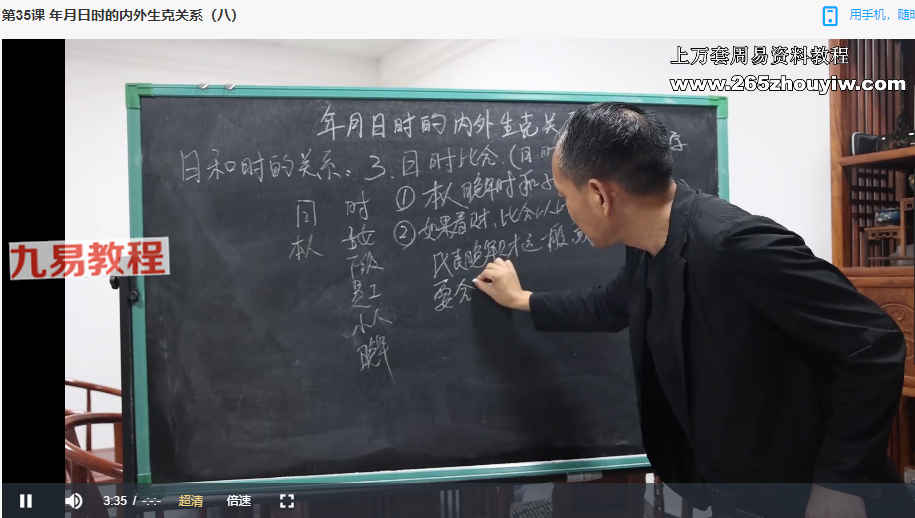 第35课 年月日时的内外生克关系（八）
用手机，随时
上万套周易资料教程
www.265zhouyiw.com
年月日时的内外生克关
日和时的关系：3.日时比合.(日.时
日 时
本人 子女
下级
员工
小人
晚年
① 本人晚年时和小
② 如果看财,比合以
民表晚年财运一般,
要合
九易教程
3:35 / -:-:-
超清
倍速